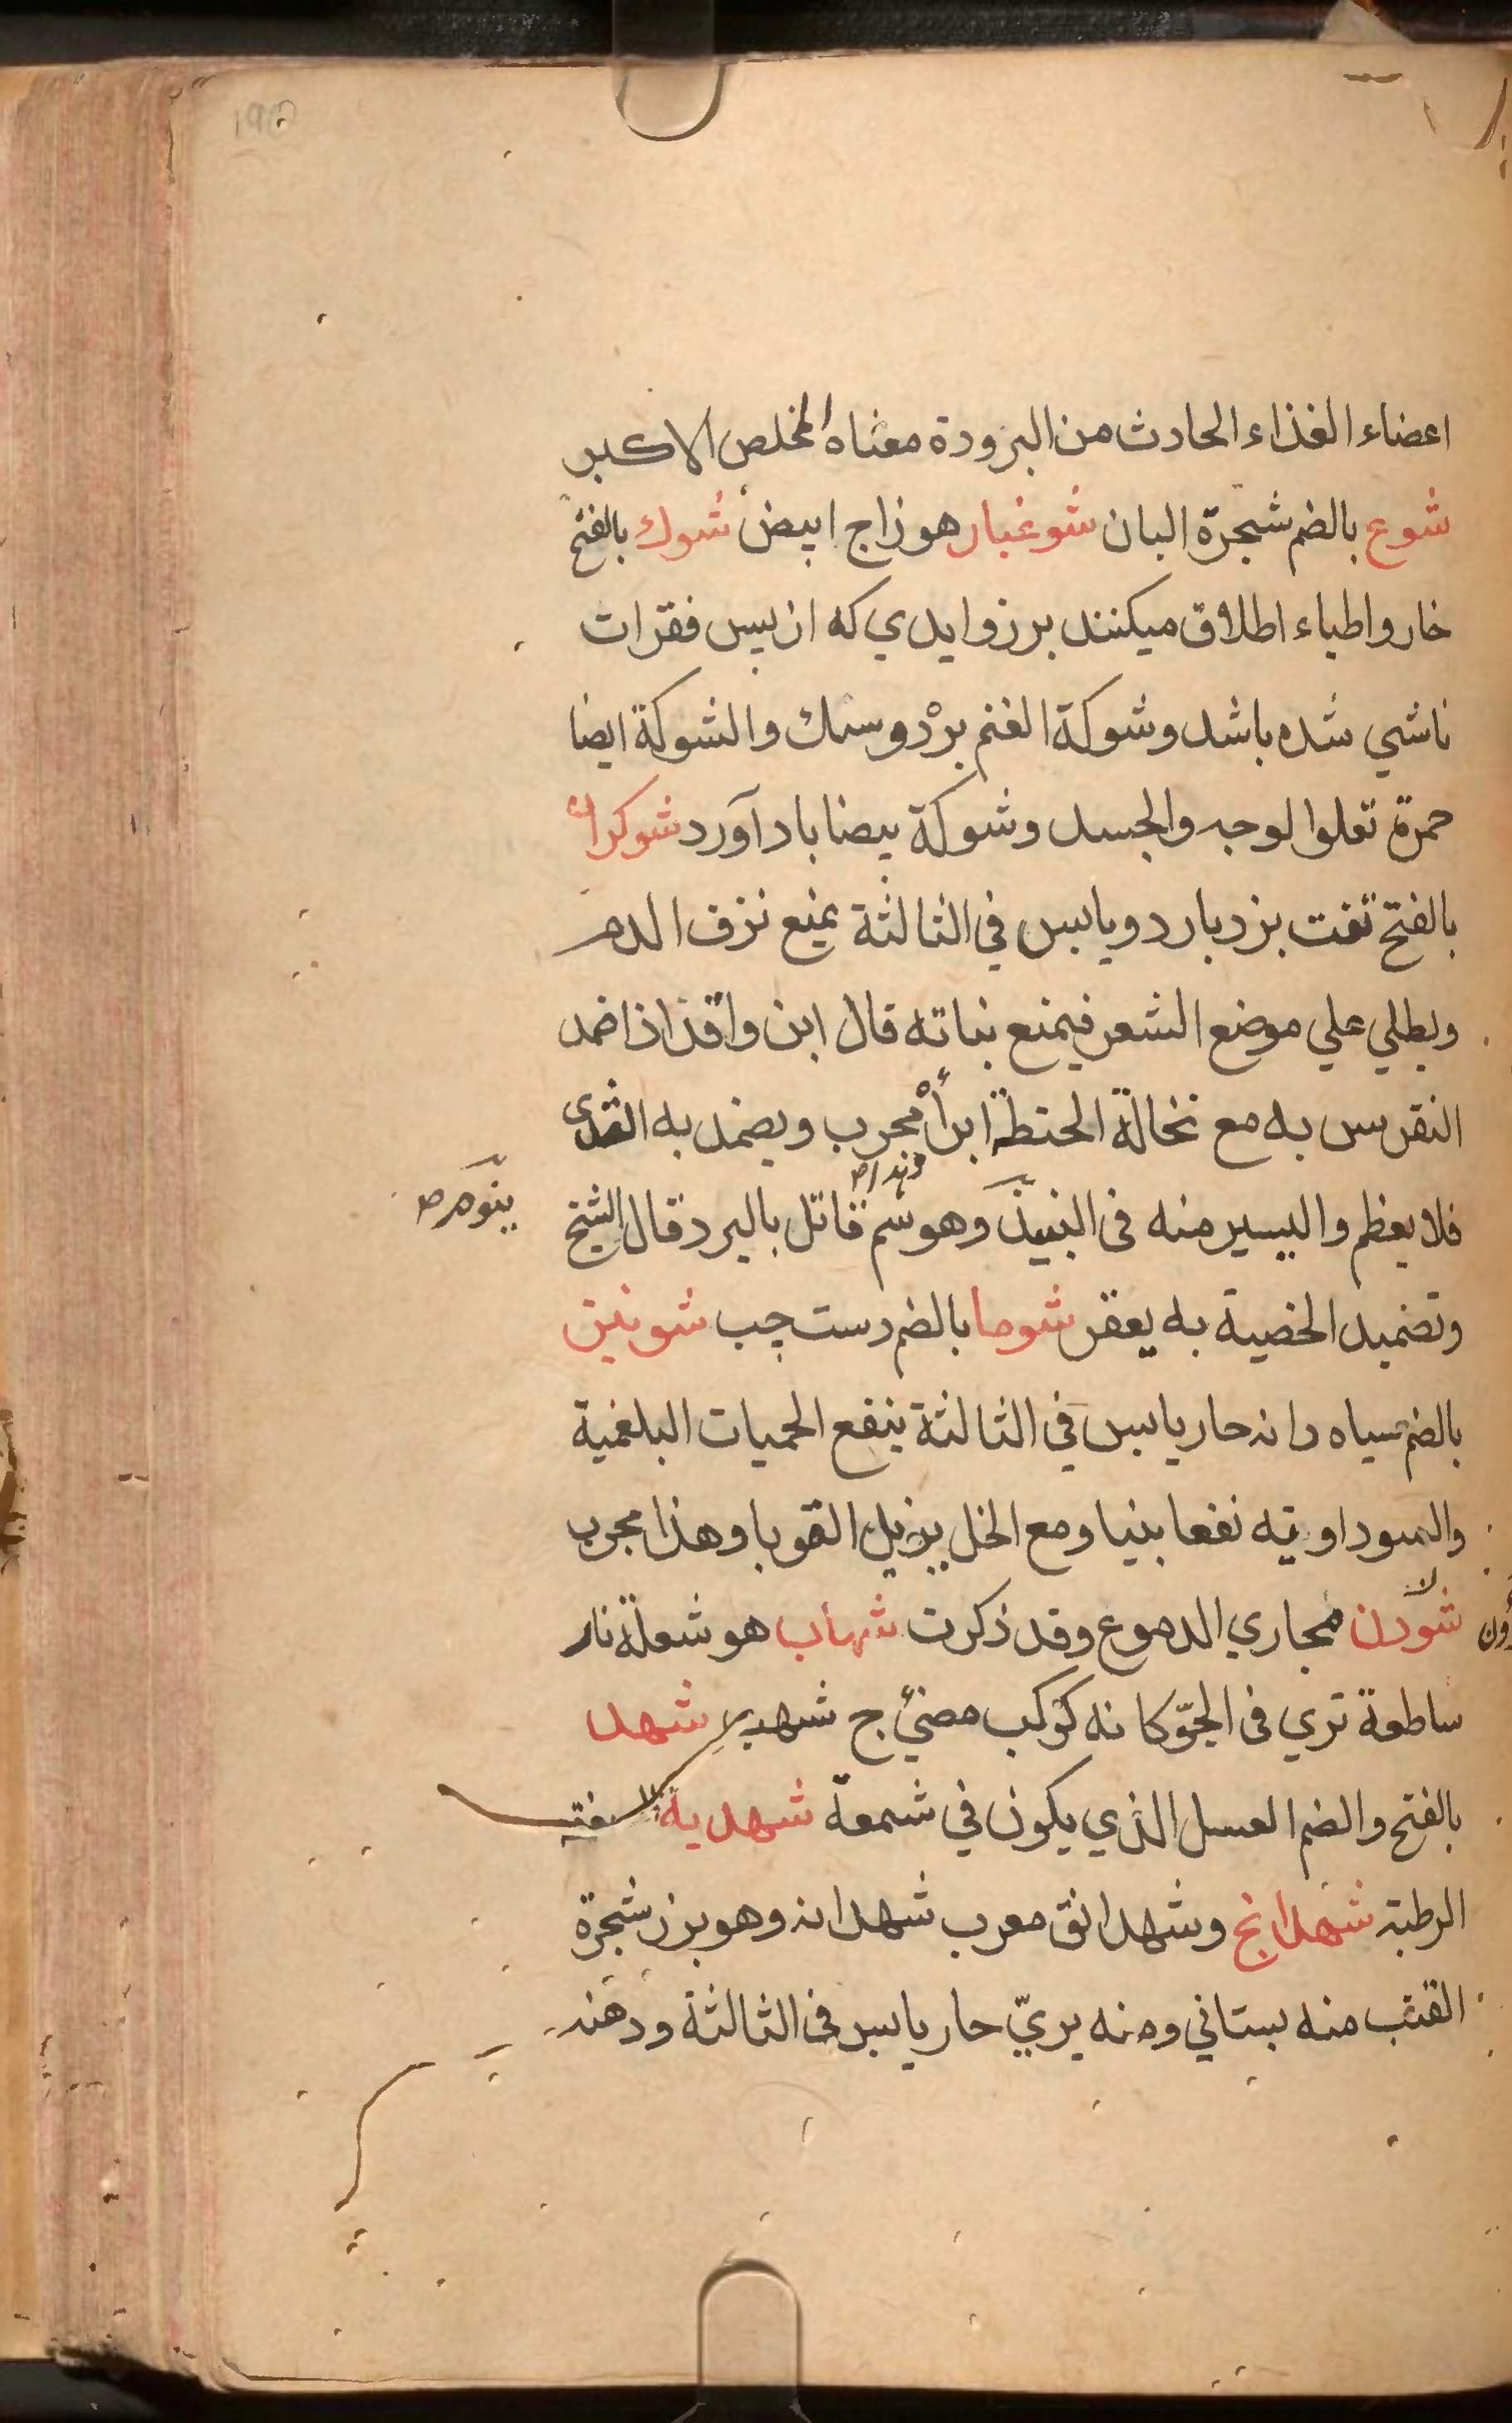 ۱۹۵
اعضاء الغذاء الحادث من البرودة معناه المخلص الاكبر
شوع بالضم شجرة البان شوغبار هو زاج ابيض شوك بالفتح
خار واطباء اطلاق ميكنند بر زوايدي كه از پس فقرات
ناشي شده باشد وشوكة الغنم بردوسك والشوكة ايضا
حمرة تعلوا لوجه والجسد وشوكة بيضا باد آورد شوكران
بالفتح تفت بزد بارد ويابس في الثالثة يمنع نزف الدم
ويطلي علي موضع الشعر فيمنع نباته قال ابن واقد اذا ضمد
النقرس به مع نخالة الحنطة ابرأ مجرب ويضمد به الثدى
فلا يعظم واليسير منه فى النبيذ وهو سم قاتل بالبرد قال الشيخ
ينوم ص
وتضميد الخصية به يعقر شوما بالضم دست چپ شونيز
بالضم سياه دانه حار يابس في الثالثة ينفع الحميات البلغمية
والسوداوية نفعا بنيا ومع الخل يزيل القوبا وهذا مجرب
شودن مجاري الدموع وقد ذكرت شهاب هو شعلة نار
ساطعة تري فى الجوّ كانه كوكب مضئ ج شهب شهد
بالفتح والضم العسل الذي يكون في شمعة شهدية السعفة
الرطبة شهدانج وشهدانق معرب شهدانه وهو بزر شجرة
القنب منه بستاني ومنه بريّ حار يابس فى الثالثة ودهنه